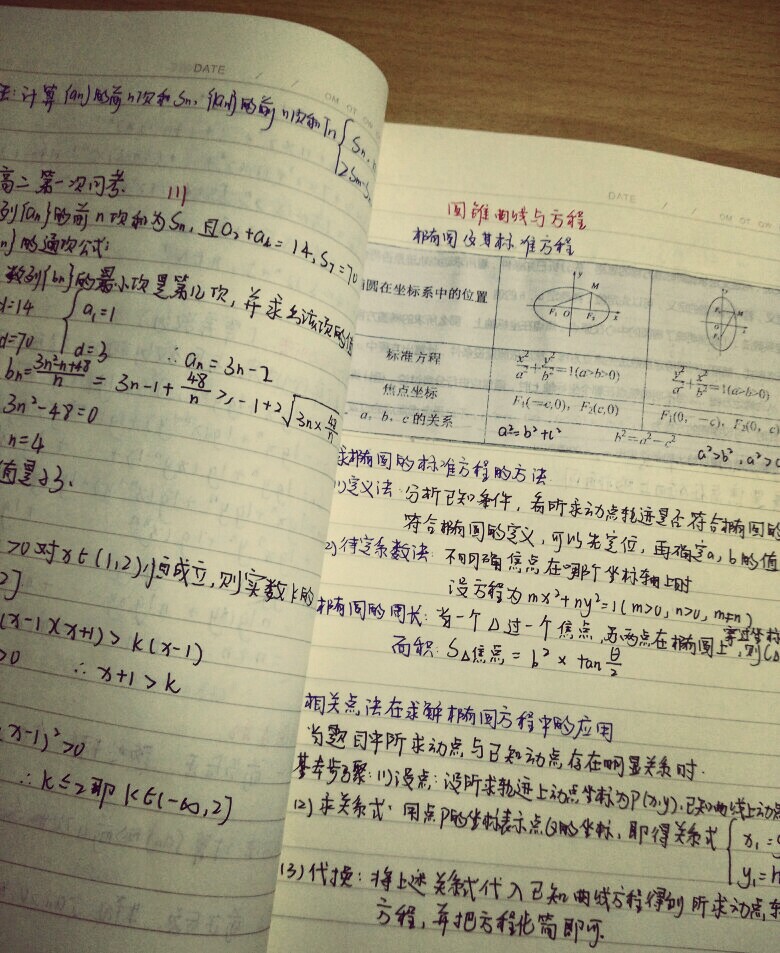 DATE / /
计算{an}的前n项和Sn,{|an|}的前n项和Tn { Sn,
2Sm-S
高二第一次月考.
列{an}的前n项和为Sn,且a2+a6=14,S7=70
n}的通项公式:
数列{bn}的最小项是第几项,并求出该项的值
d=14 { a1=1
d=70 d=3 ∴an=3n-2
bn=3n²-n+48/n = 3n-1+48/n ≥ -1+2√3n×48/n
3n²-48=0
n=4
值是23.
>0对x∈(1,2)恒成立,则实数k的
2]
(x-1)(x+1)>k(x-1)
>0 ∴x+1>k
(x-1)²>0
∴k≤2即k∈(-∞,2]
DATE / /
圆锥曲线与方程
椭圆及其标准方程
圆在坐标系中的位置 y M F1 O F2 x
标准方程 x²/a²+y²/b²=1(a>b>0) y²/a²+x²/b²=1(a>b>0)
焦点坐标 F1(-c,0),F2(c,0) F1(0,-c),F2(0,c)
a、b、c的关系 a²=b²+c² b²=a²-c² a²>b²,a²>c
求椭圆的标准方程的方法
(1)定义法:分析已知条件,看所求动点轨迹是否符合椭圆的
符合椭圆的定义,可以先定位,再确定a,b的值
(2)待定系数法:不明确焦点在哪个坐标轴上时
设方程为mx²+ny²=1(m>0,n>0,m≠n)
椭圆的周长:当一个△过一个焦点,另两点在椭圆上,则C△
面积:S△焦点=b²×tanθ/2
相关点法在求解椭圆方程中的应用
当题目中所求动点与已知动点存在明显关系时.
基本步骤:(1)设点:设所求轨迹上动点坐标为P(x,y),已知曲线上动点
(2)求关系式:用点P的坐标表示点Q的坐标,即得关系式 { x1=g
y1=h
(3)代换:将上述关系式代入已知曲线方程得到所求动点轨
方程,并把方程化简即可.